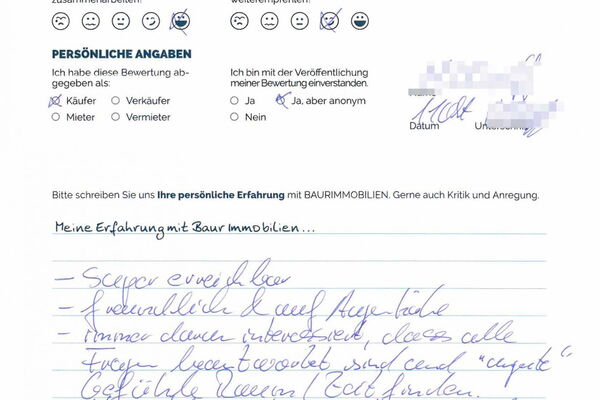 zusammenarbeiten?
weiterempfehlen?
PERSÖNLICHE ANGABEN
Ich habe diese Bewertung ab-
gegeben als:
Käufer
Verkäufer
Mieter
Vermieter
Ich bin mit der Veröffentlichung
meiner Bewertung einverstanden.
Ja
Ja, aber anonym
Nein
Name
Datum
Unterschrift
Bitte schreiben Sie uns Ihre persönliche Erfahrung mit BAURIMMOBILIEN. Gerne auch Kritik und Anregung.
Meine Erfahrung mit Baur Immobilien...
- Super erreichbar
- freundlich & auf Augenhöhe
- immer daran interessiert, dass alle
Fragen beantwortet sind und
Gefühle Raum / Zeit finden.